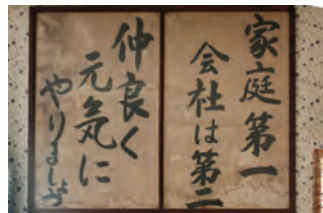 家庭第一
会社は第二
仲良く
元気に
やりましょう